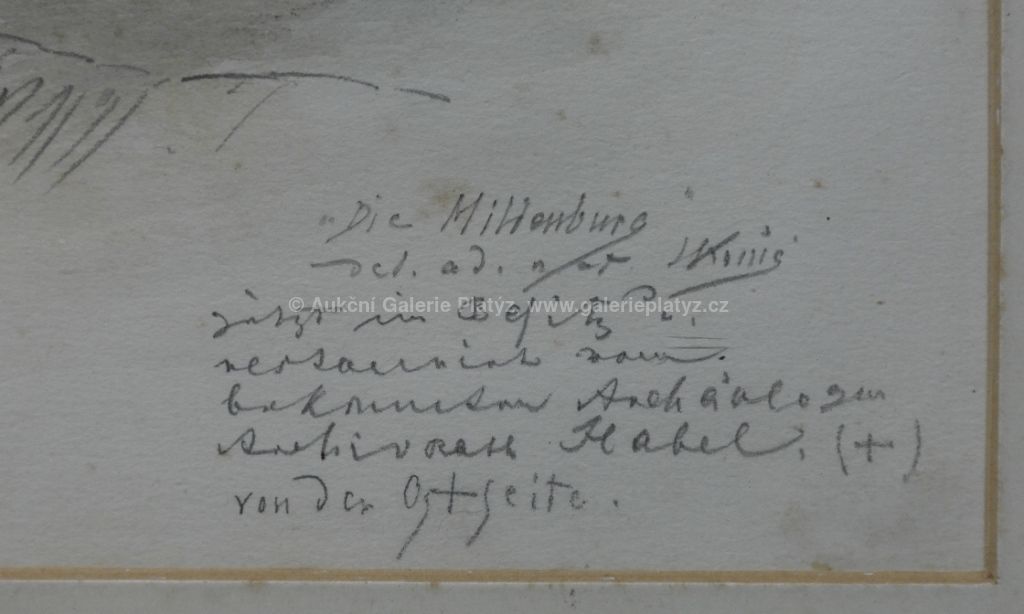 "Die Mildenburg"
del. ad. nat. König
© Aukční Galerie Platýz, www.galerieplatyz.cz
jetzt in Besitz u.
restaurirt vom
bekannten Archäologen
Archivrath Habel. (+)
von der Ostseite.